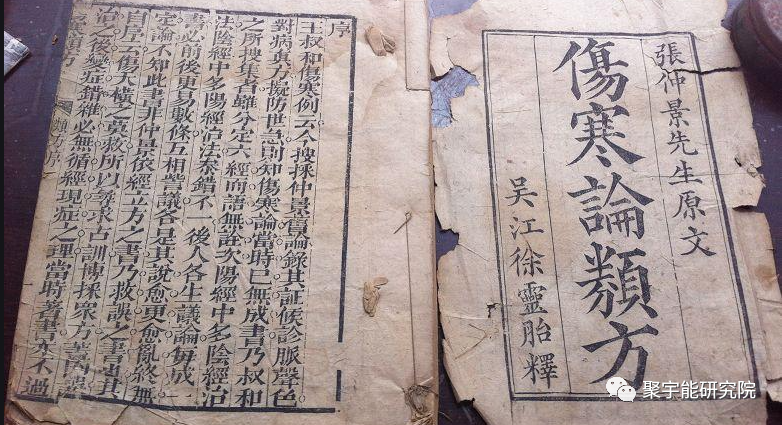 張仲景先生原文
傷寒論類方
吳江徐靈胎釋
序
王叔和傷寒例云今搜採仲景舊論錄其証候診脈聲色
對病真方擬防世急則知傷寒論當時已無成書乃叔和
之所搜集者雖分定六經而語無詮次陽經中多陰經治
法陰經中多陽經治法叅錯不一後人各生議論每成一
書必前後更易數條互相訾議各是其說愈更愈亂終無
定論不知此書非仲景依經立方之書乃救誤之書其
自序云傷夭橫之莫救所以尋求古訓博採眾方葢因
治之後變症錯雜必無循經現症之理當時著書亦不過
類方 類方序
聚宇能研究院